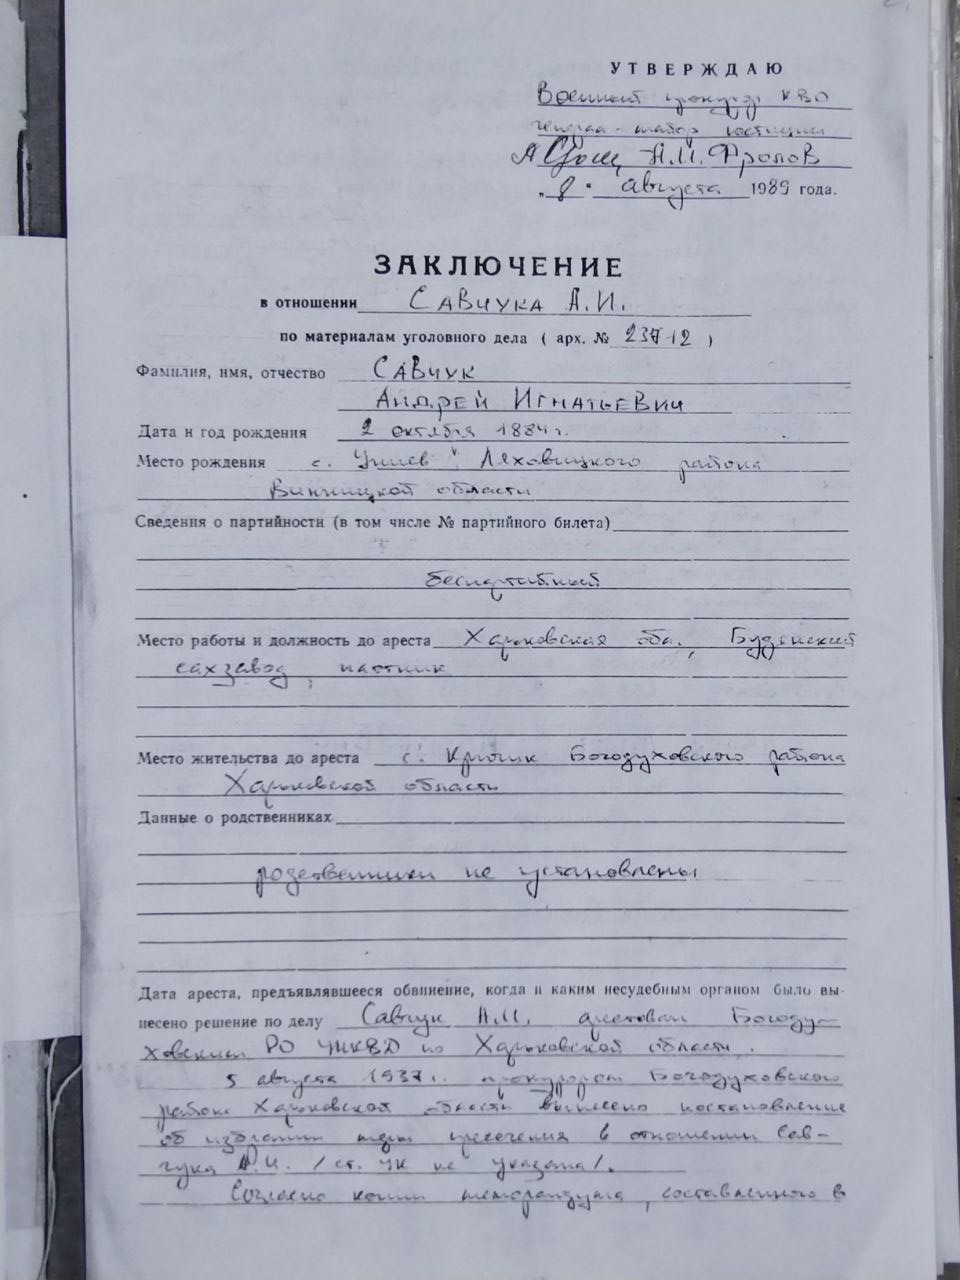 УТВЕРЖДАЮ
Военный прокурор КВО
генерал-майор юстиции
А.И. Фролов
„8" августа 1989 года.
ЗАКЛЮЧЕНИЕ
в отношении САВЧУКА А.И.
по материалам уголовного дела ( арх. № 23712 )
Фамилия, имя, отчество САВЧУК
АНДРЕЙ ИГНАТЬЕВИЧ
Дата и год рождения 2 октября 1884 г.
Место рождения с. Ляховицкого района
Винницкой области
Сведения о партийности (в том числе № партийного билета)
беспартийный
Место работы и должность до ареста Харьковская обл., Будянский
сахзавод,
Место жительства до ареста с. Крючик Богодуховского района
Харьковской области
Данные о родственниках
родственники не установлены
Дата ареста, предъявлявшееся обвинение, когда и каким несудебным органом было вы-
несено решение по делу Савчук А.И. арестован Богоду-
ховским РО УНКВД по Харьковской области.
5 августа 1937 г. прокурором Богодуховского
района Харьковской области вынесено постановление
об избрании меры пресечения в отношении Сав-
чука А.И. /ст. УК не указана/.
Согласно копии меморандума, составленного в